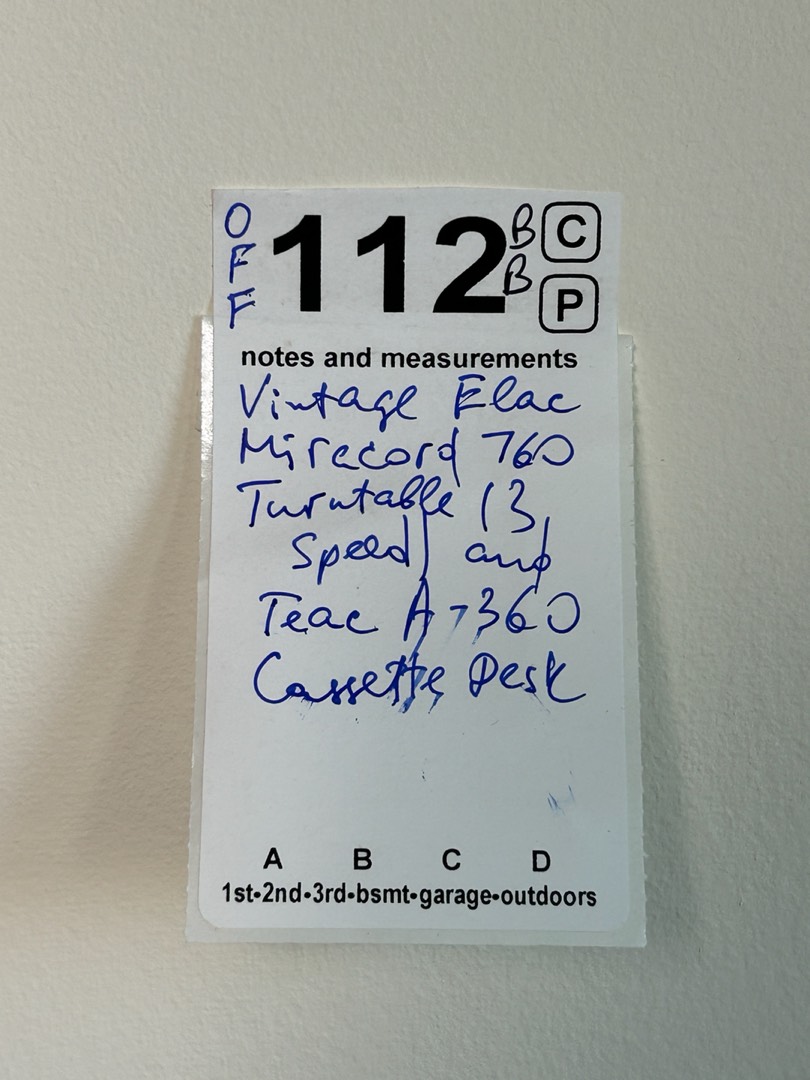 OFF 112 BB C
P
notes and measurements
Vintage Elac
Mirecord 760
Turntable (3
Speed) and
Teac A-360
Cassette Desk
A B C D
1st•2nd•3rd•bsmt•garage•outdoors